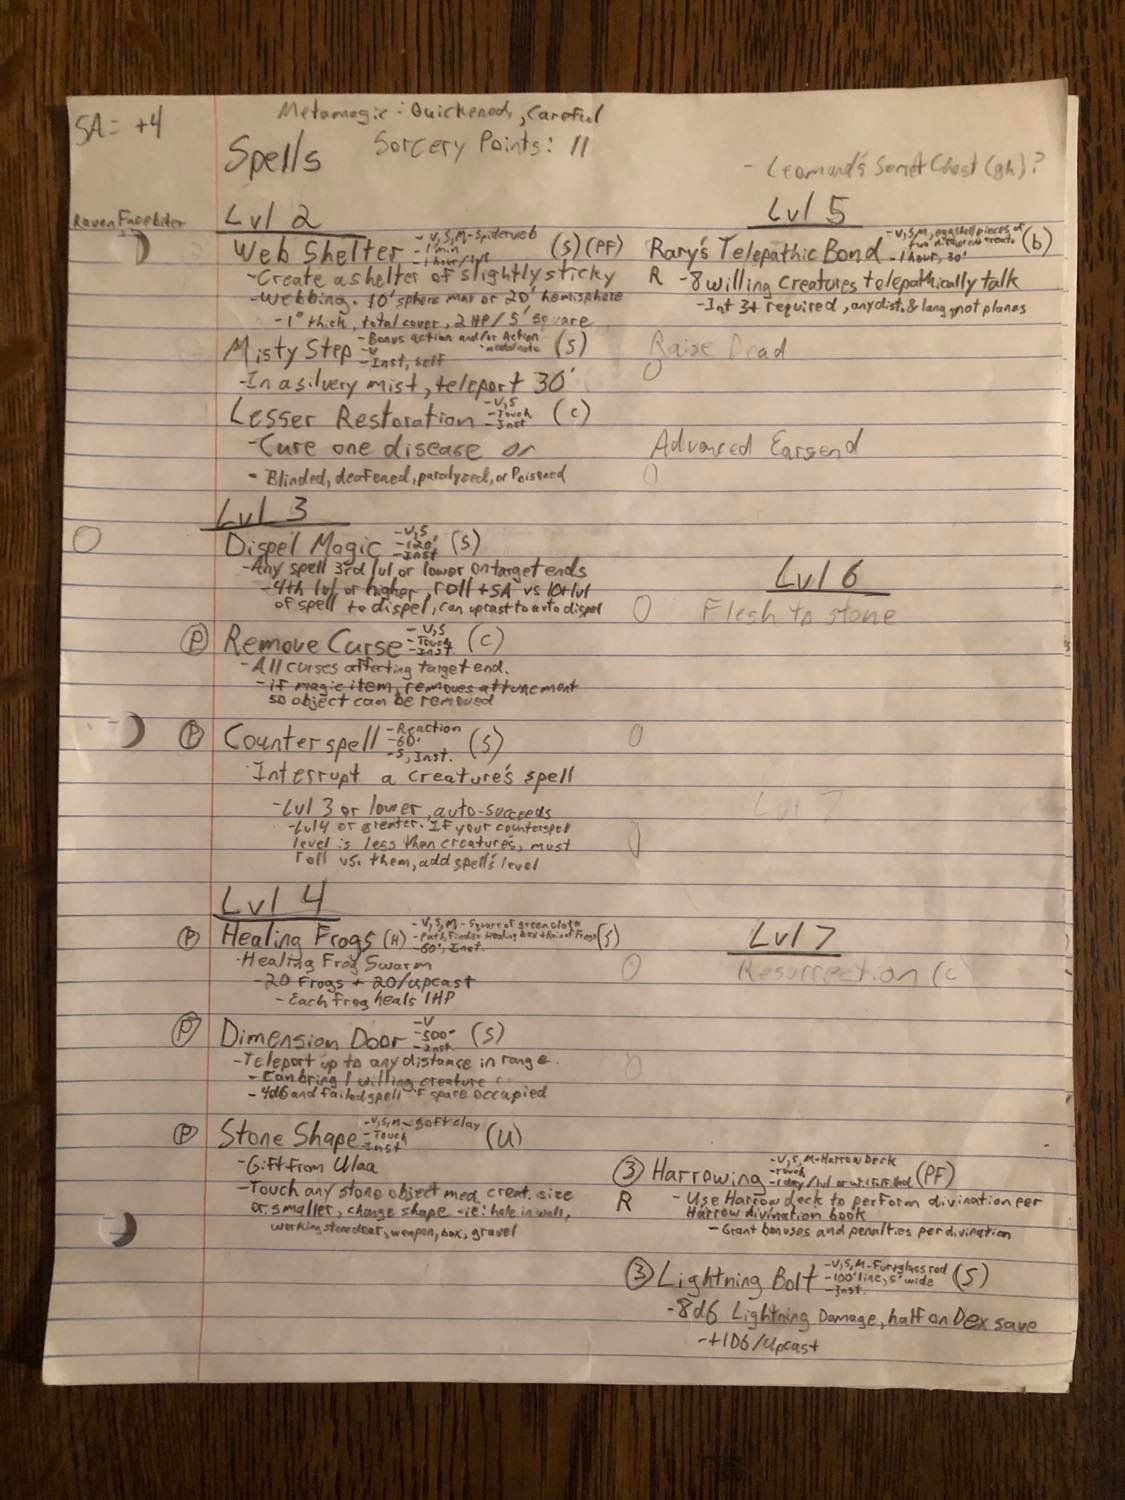 SA = +4
Metamagic: Quickened, Careful
Sorcery Points: 11
Spells
- Leomund's Secret Chest (gh)?
Raven Facebiter
Lvl 2
Web Shelter (S) (PF)
- V, S, M - Spiderweb
- 1 min
- 1 hour/lvl
- Create a shelter of slightly sticky
- Webbing. 10' sphere max or 20' hemisphere
- 1" thick, total cover, 2 HP/5' square
Misty Step (S)
- Bonus action and/or Action
- V
- Inst, self
- In a silvery mist, teleport 30'
Lesser Restoration (C)
- V, S
- Touch
- Inst
- Cure one disease or
- Blinded, deafened, paralyzed, or Poisoned
Lvl 3
Dispel Magic (S)
- V, S
- 120'
- Inst
- Any spell 3rd lvl or lower on target ends
- 4th lvl or higher, roll + SA vs 10 + lvl
of spell to dispel, can upcast to auto dispel
P Remove Curse (C)
- V, S
- Touch
- Inst.
- All curses affecting target end.
- if magic item, removes attunement
so object can be removed
P Counterspell (S)
- Reaction
- 60'
- S, Inst.
- Interrupt a creature's spell
- Lvl 3 or lower, auto-succeeds
- Lvl 4 or greater. If your counterspell
level is less than creature's, must
roll vs. them, add spell's level
Lvl 4
P Healing Frogs (H) (S)
- V, S, M - Square of green cloth
- Path Finder Healing Hex + Rain of Frogs
- 60', Inst.
- Healing Frog Swarm
- 20 Frogs + 20/upcast
- Each Frog heals 1HP
P Dimension Door (S)
- V
- 500'
- Inst
- Teleport up to any distance in range.
- Can bring 1 willing creature
- 4d6 and failed spell if space occupied
P Stone Shape (U)
- V, S, M - soft clay
- Touch
- Inst
- Gift from Ulaa
- Touch any stone object med. creat. size
or smaller, change shape - ie: hole in wall,
working stone door, weapon, box, gravel
Lvl 5
Rary's Telepathic Bond (b)
- V, S, M, eggshell pieces of
two different creats
- 1 hour, 30'
R - 8 willing creatures telepathically talk
- Int 3+ required, any dist. & lang, not planes
Raise Dead
Advanced
Lvl 6
Flesh to stone
Lvl 7
Lvl 7
Resurrection (c)
3 Harrowing (PF)
- V, S, M - Harrow Deck
- Touch
- 1 day/lvl or
R - Use Harrow deck to perform divination per
Harrow divination book
- Grant bonuses and penalties per divination
3 Lightning Bolt (S)
- V, S, M - Fur + glass rod
- 100' line, 5' wide
- Inst.
- 8d6 Lightning Damage, half on Dex save
- +1D6/Upcast